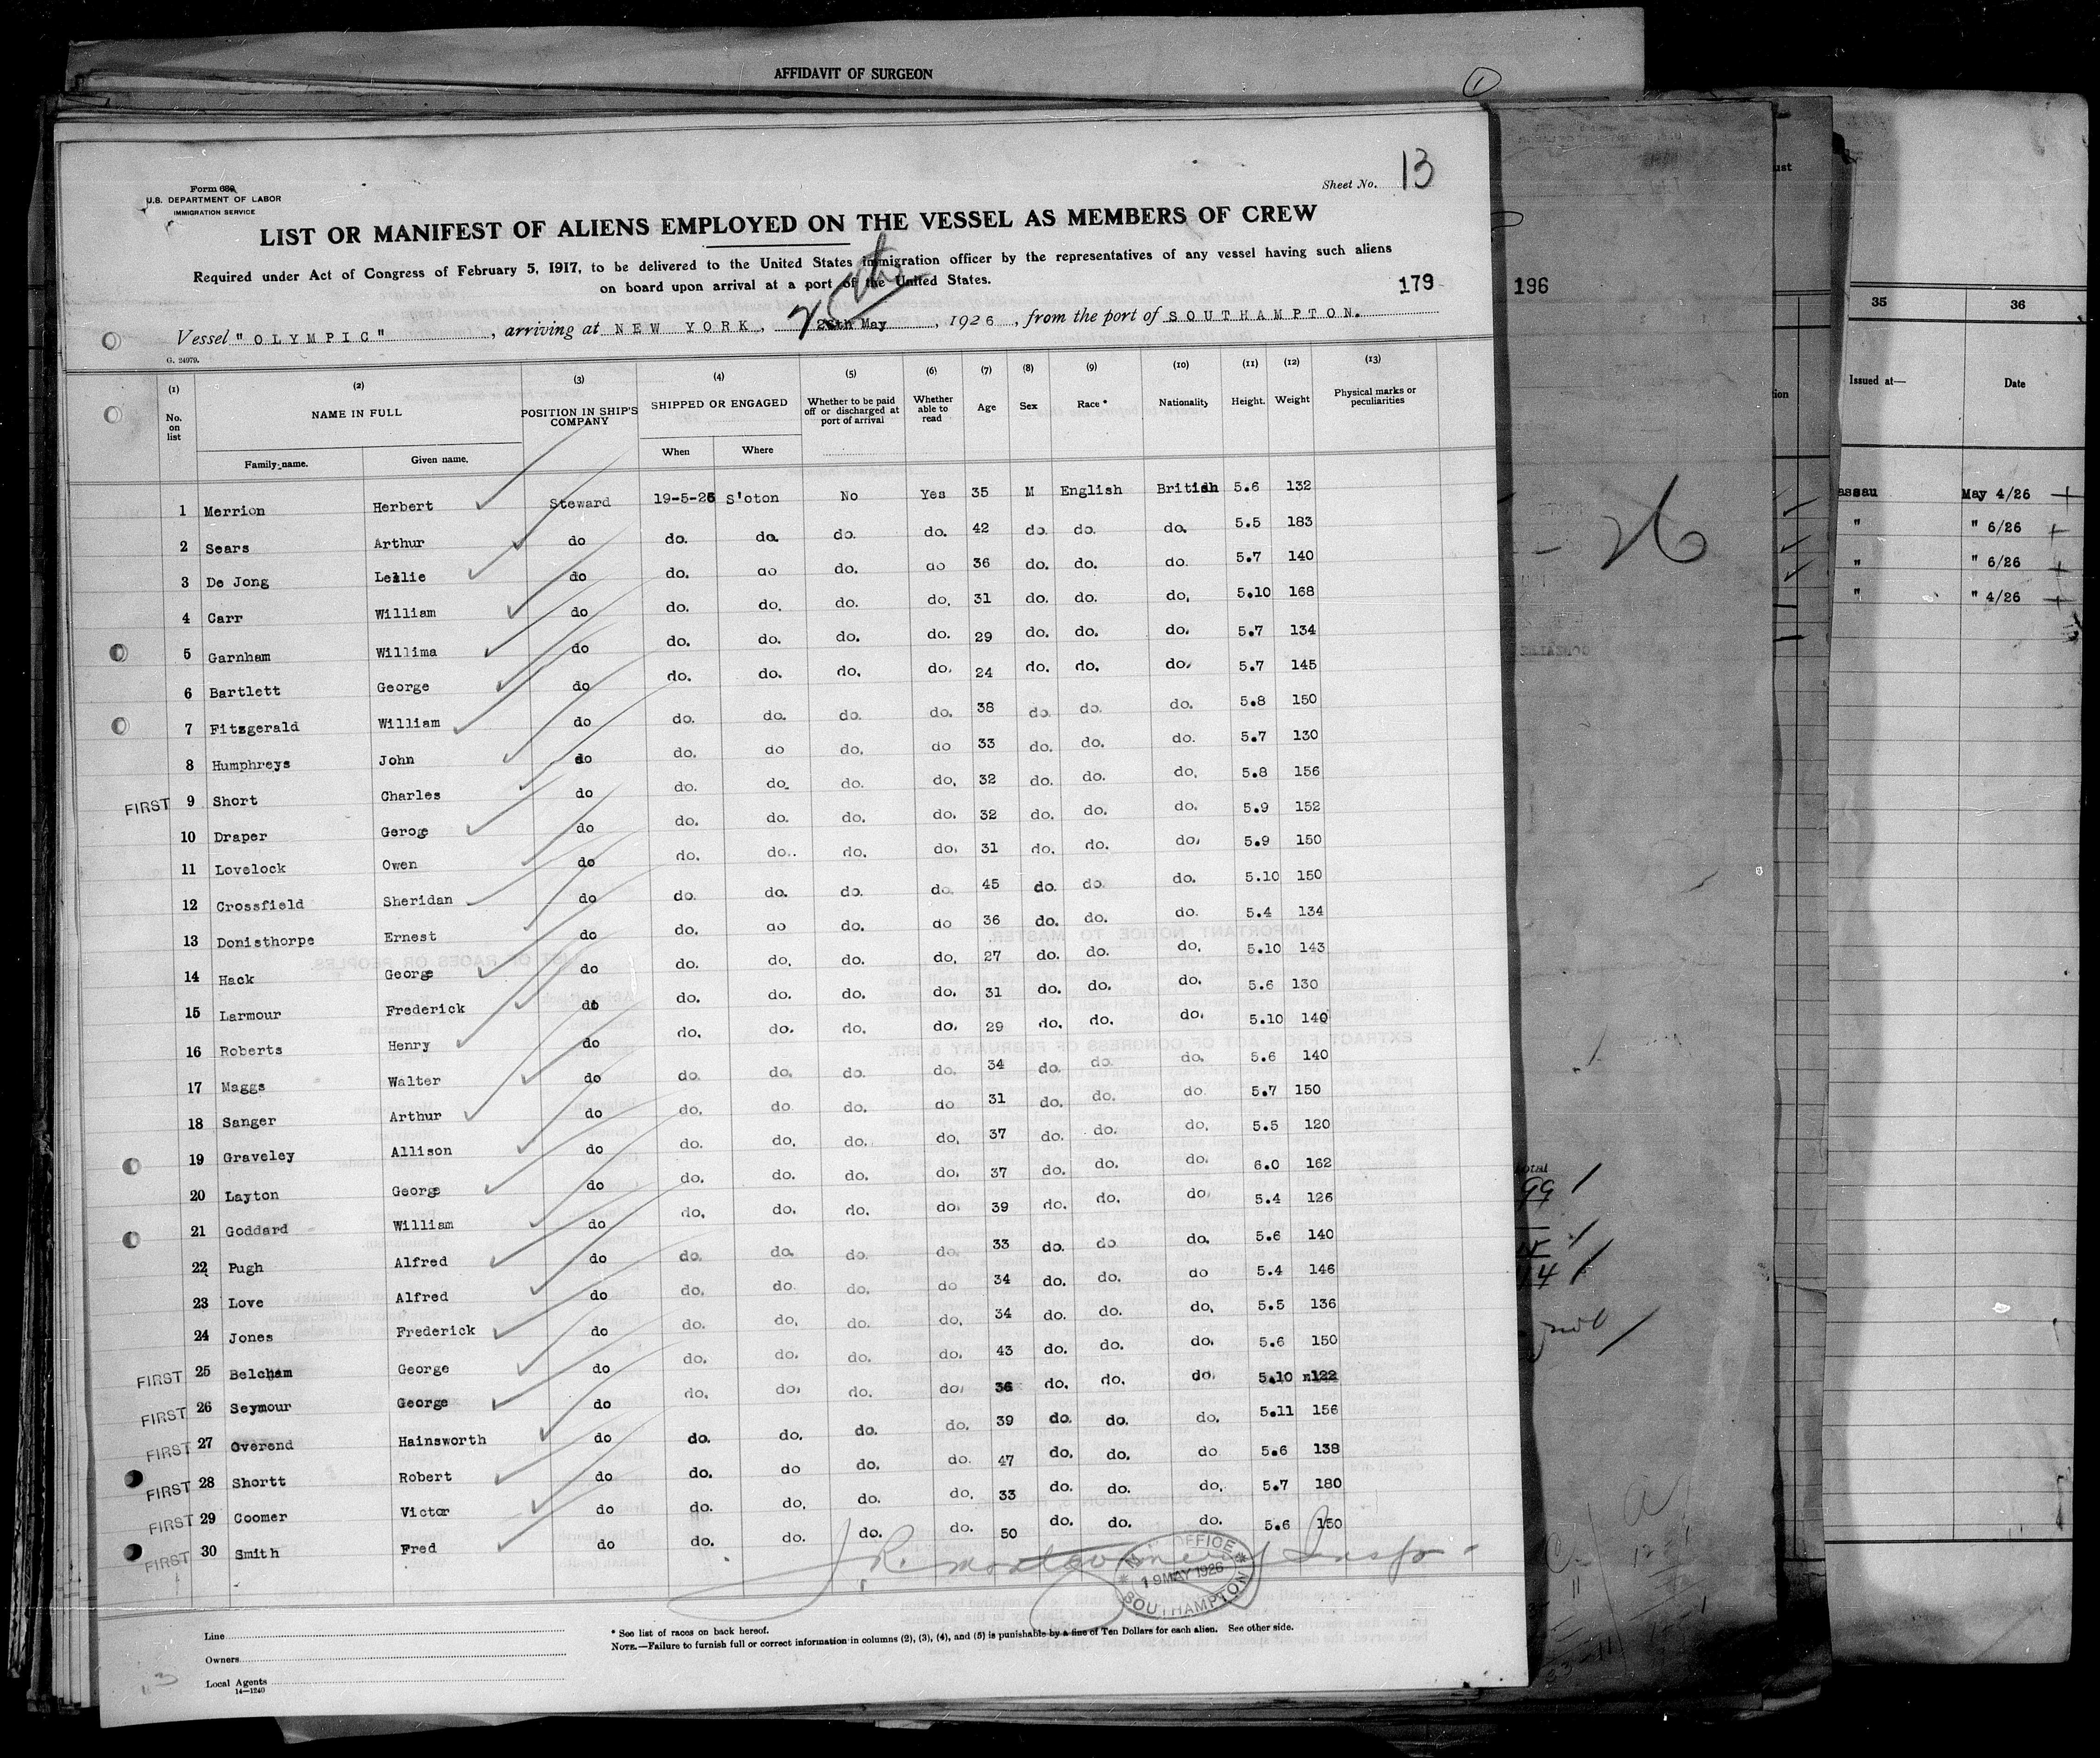 AFFIDAVIT OF SURGEON
1
Sheet No. 13
U.S. DEPARTMENT OF LABOR
IMMIGRATION SERVICE
LIST OR MANIFEST OF ALIENS EMPLOYED ON THE VESSEL AS MEMBERS OF CREW
Required under Act of Congress of February 5, 1917, to be delivered to the United States immigration officer by the representatives of any vessel having such aliens
on board upon arrival at a port of the United States.
179
196
Vessel "OLYMPIC", arriving at NEW YORK, May, 1926, from the port of SOUTHAMPTON.
G. 24979.
(1) (2) (3) (4) (5) (6) (7) (8) (9) (10) (11) (12) (13)
No. on list NAME IN FULL POSITION IN SHIP'S COMPANY SHIPPED OR ENGAGED Whether to be paid off or discharged at port of arrival Whether able to read Age Sex Race * Nationality Height. Weight Physical marks or peculiarities
Family name. Given name. When Where
1 Merrion Herbert Steward 19-5-26 S'oton No Yes 35 M English British 5.6 132
2 Sears Arthur do do. do. do. do. 42 do. do. do. 5.5 183
3 De Jong Leslie do do. do do. do 36 do. do. do. 5.7 140
4 Carr William do do. do. do. do. 31 do. do. do. 5.10 168
5 Garnham Willima do do. do. do. do. 29 do. do. do. 5.7 134
6 Bartlett George do do. do. do. do. 24 do. do. do. 5.7 145
7 Fitzgerald William do do. do. do. do. 38 do. do. do. 5.8 150
8 Humphreys John do do. do do. do 33 do. do. do. 5.7 130
FIRST 9 Short Charles do do. do. do. do. 32 do. do. do. 5.8 156
10 Draper Geroge do do. do. do. do. 32 do. do. do. 5.9 152
11 Lovelock Owen do do. do.. do. do. 31 do. do. do. 5.9 150
12 Crossfield Sheridan do do. do. do. do. 45 do. do. do. 5.10 150
13 Donisthorpe Ernest do do. do do. do 36 do. do. do. 5.4 134
14 Hack George do do. do. do. do. 27 do. do. do. 5.10 143
15 Larmour Frederick do do. do. do. do. 31 do. do. do. 5.6 130
16 Roberts Henry do do. do. do. do. 29 do. do. do. 5.10 140
17 Maggs Walter do do. do. do. do. 34 do. do. do. 5.6 140
18 Sanger Arthur do do. do do. do 31 do. do. do. 5.7 150
19 Graveley Allison do do. do. do. do. 37 do. do. do. 5.5 120
20 Layton George do do. do. do. do. 37 do. do. do. 6.0 162
21 Goddard William do do. do. do. do. 39 do. do. do. 5.4 126
22 Pugh Alfred do do. do. do. do. 33 do. do do. 5.6 140
23 Love Alfred do do. do do. do 34 do. do. do 5.4 146
24 Jones Frederick do do. do. do. do. 34 do. do. do. 5.5 136
FIRST 25 Belcham George do do. do. do. do. 43 do. do. do. 5.6 150
FIRST 26 Seymour George do do. do. do. do. 36 do. do. do. 5.10 122
FIRST 27 Overend Hainsworth do do. do. do. do. 39 do. do. do. 5.11 156
FIRST 28 Shortt Robert do do. do do. do. 47 do. do. do 5.6 138
FIRST 29 Coomer Victor do do. do. do. do. 33 do. do. do. 5.7 180
FIRST 30 Smith Fred do do. do. do. do. 50 do. do. do. 5.6 150
OFFICE
19 MAY 1926
SOUTHAMPTON
Line
Owners
Local Agents
14—1240
* See list of races on back hereof.
NOTE.—Failure to furnish full or correct information in columns (2), (3), (4), and (5) is punishable by a fine of Ten Dollars for each alien. See other side.
26
35 36
Issued at— Date
assau May 4/26
" " 6/26
" " 6/26
" " 4/26